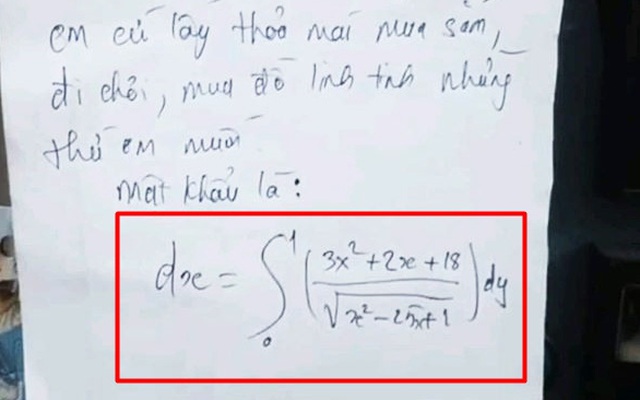 em cứ lấy thoả mái mua sắm,
đi chơi, mua đồ linh tinh những
thứ em muốn
mật khẩu là:
dx = ∫₀¹ ( (3x² + 2x + 18) / √(x² - 25x + 1) ) dy